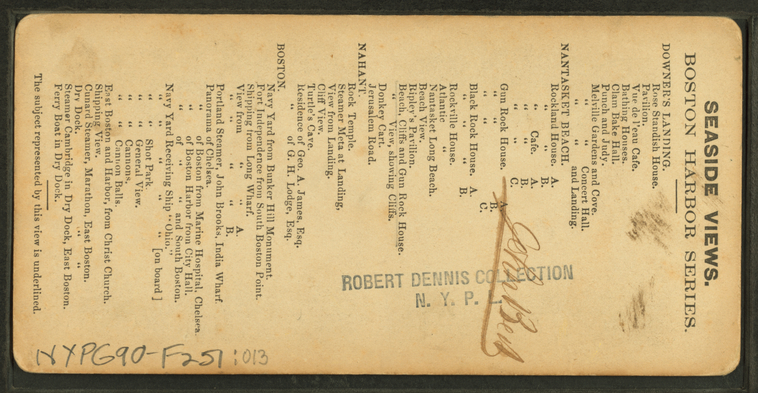 SEASIDE VIEWS.
BOSTON HARBOR SERIES.
DOWNER'S LANDING.
Rose Standish House.
Pavilion.
Vue de l'eau Cafe.
Bathing Houses.
Clam Bake Hall.
Punch and Judy.
Melville Gardens and Cove.
" " Concert Hall.
" " and Landing.
NANTASKET BEACH.
Rockland House. A.
" " B.
" Cafe. A.
" " B.
" " C.
" " B.
Gun Rock House. A.
" " B.
" " C.
Black Rock House. A.
" " B.
Rockville House.
Atlantic "
Nantasket Long Beach.
Beach View.
Ripley's Pavilion.
Beach, Cliffs and Gun Rock House.
" View, showing Cliffs.
Donkey Cart.
Jerusalem Road.
NAHANT.
Rock Temple.
Steamer Meta at Landing.
View from Landing.
Cliff View.
Turtle's Cave.
Residence of Geo. A. James, Esq.
" of G. H. Lodge, Esq.
BOSTON.
Navy Yard from Bunker Hill Monument.
Fort Independence from South Boston Point.
Shipping from Long Wharf.
View from " " A.
" " " " B.
Portland Steamer, John Brooks, India Wharf.
Panorama of Chelsea.
" of Boston from Marine Hospital, Chelsea.
" of Boston Harbor from City Hall.
" of " " and South Boston.
Navy Yard Receiving Ship "Ohio."
" " " " [on board]
" " Shot Park.
" " General View.
" " Cannons.
" " Cannon Balls.
East Boston and Harbor, from Christ Church.
Shipping View.
Cunard Steamer, Marathon, East Boston.
Dry Dock. " "
Steamer Cambridge in Dry Dock, East Boston.
Ferry Boat in Dry Dock.
The subject represented by this view is underlined.
ROBERT DENNIS COLLECTION
N. Y. P. L.
NYPG90-F251:013